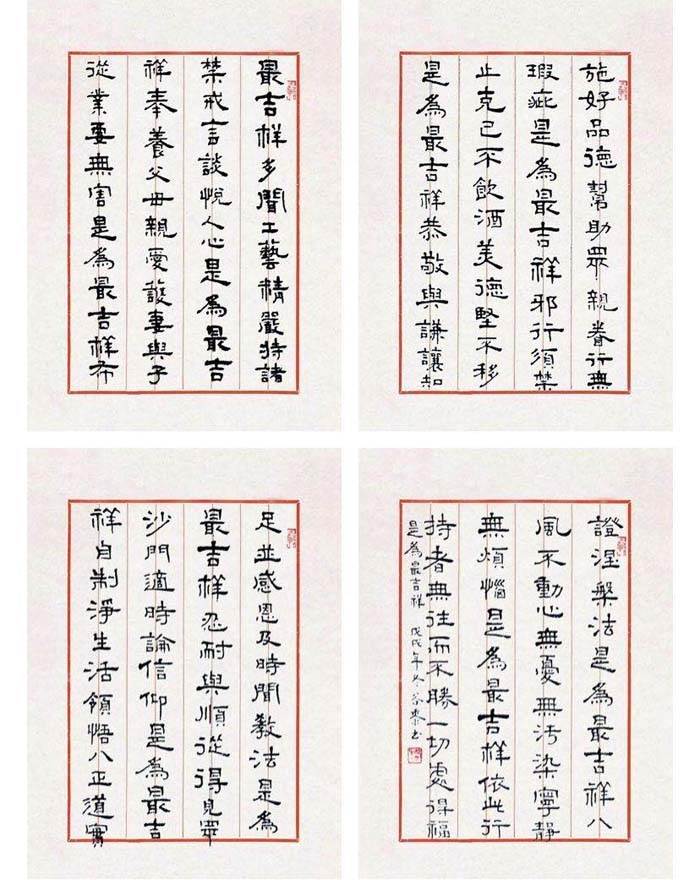 最吉祥多聞工藝精嚴持諸
禁戒言談悅人心是為最吉
祥奉養父母親愛護妻與子
從業要無害是為最吉祥布
施好品德幫助眾親眷行無
瑕疵是為最吉祥邪行須禁
止克己不飲酒美德堅不移
是為最吉祥恭敬與謙讓知
足並感恩及時聞教法是為
最吉祥忍耐與順從得見眾
沙門適時論信仰是為最吉
祥自制淨生活領悟八正道實
證涅槃法是為最吉祥八
風不動心無憂無污染寧靜
無煩惱是為最吉祥依此行
持者無往而不勝一切處得福
是為最吉祥 戊戌年冬